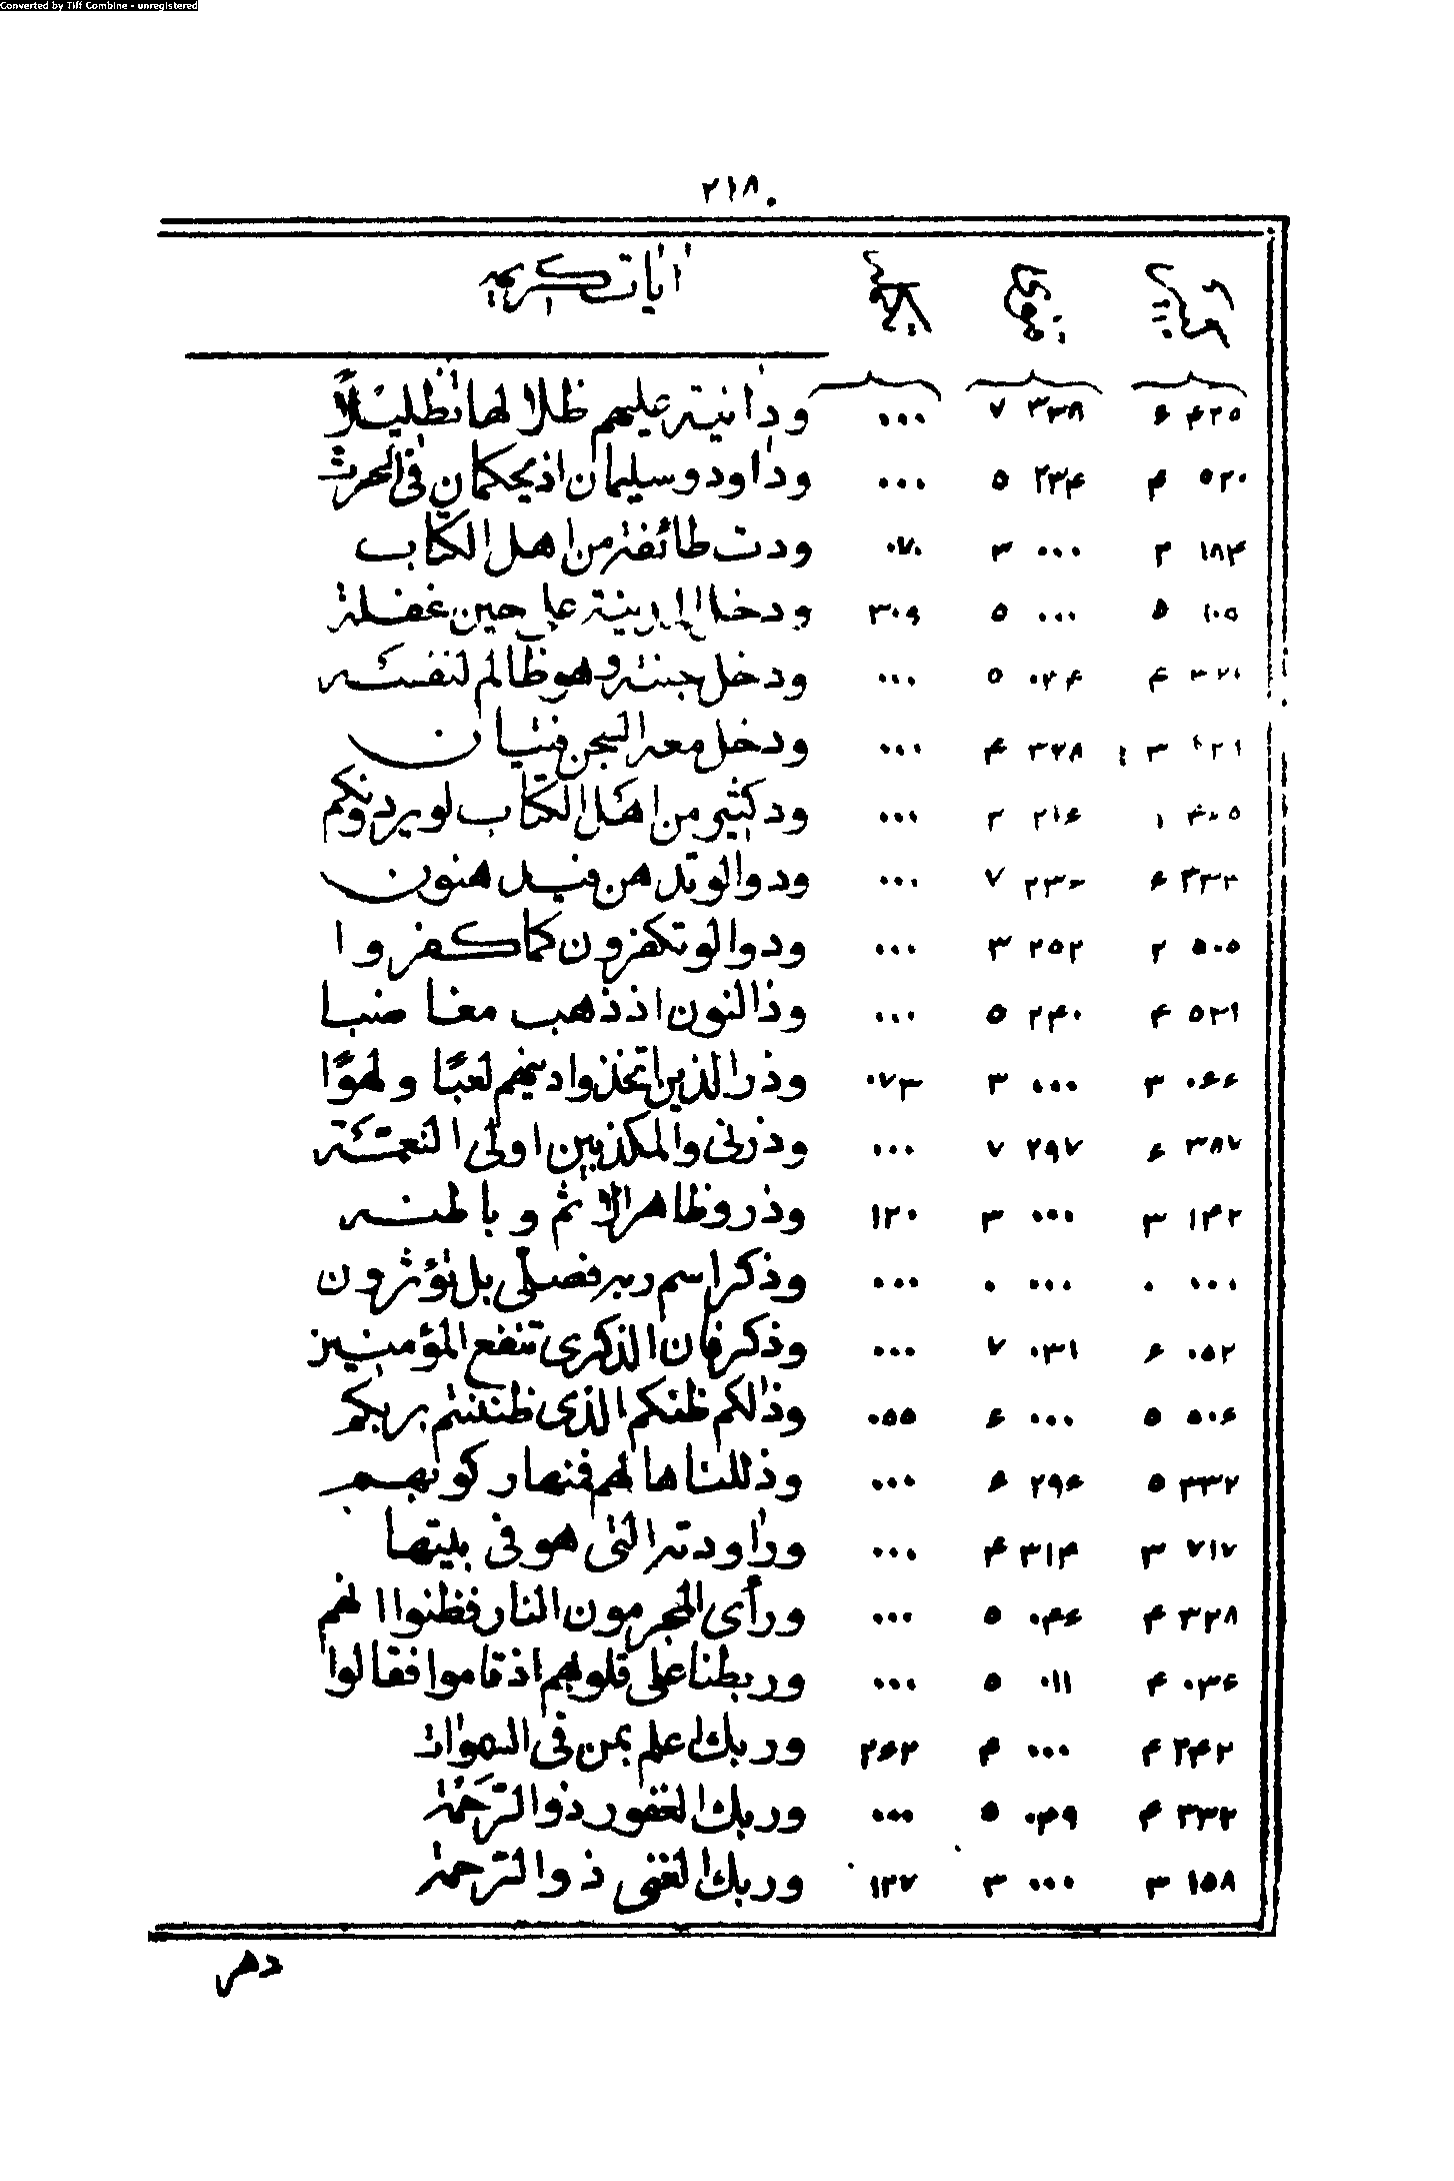 Converted by Tiff Combine - unregistered
٢١٨.
ايات كريمه
۴۲۵ ۶ ۳۳۸ ۷ ... ودانية عليهم ظلالها تظليلاً
۵۲۰ ۴ ۲۳۴ ۵ ... وداود وسليمان اذ يحكمان في الحرث
۱۸۴ ۲ ... ۳ ۰۷۰ ودت طائفة من اهل الكتاب
۱۰۵ ۵ ... ۵ ۳۰۹ ودخل المدينة على حين غفلة
۳۷۰ ۴ ۰۲۴ ۵ ... ودخل جنته وهو ظالم لنفسه
۳ ۳۲۸ ۴ ... ودخل معه السجن فتيان
۴۰۵ ۱ ۲۱۶ ۲ ... ود كثير من اهل الكتاب لو يردونكم
۳۳۲ ۶ ۷ ... ودوا لو تدهن فيدهنون
۵۰۵ ۲ ۲۵۲ ۳ ... ودوا لو تكفرون كما كفروا
۵۲۱ ۴ ۲۴۰ ۵ ... وذا النون اذ ذهب مغاضبا
۰۶۶ ۳ ... ۳ ۰۷۳ وذر الذين اتخذوا دينهم لعبًا ولهوًا
۳۸۷ ۶ ۲۹۷ ۷ ... وذرني والمكذبين اولى النعمة
۱۴۲ ۳ ... ۳ ۱۲۰ وذروا ظاهر الاثم وباطنه
... ۰ ... ۰ ... وذكر اسم ربه فصلى بل تؤثرون
۰۵۲ ۶ ۰۳۱ ۷ ... وذكر فان الذكرى تنفع المؤمنين
۵۰۶ ۵ ... ۶ ۰۵۵ وذالكم ظنكم الذي ظننتم بربكم
۳۳۲ ۵ ۲۹۶ ۶ ... وذللناها لهم فمنها ركوبهم
۷۱۷ ۳ ۳۱۴ ۴ ... وراودته التي هو في بيتها
۳۲۸ ۴ ۰۴۶ ۵ ... ورأى المجرمون النار فظنوا انهم
۰۳۶ ۴ ۰۱۱ ۵ ... وربطنا على قلوبهم اذ قاموا فقالوا
۲۴۲ ۴ ... ۴ ۲۶۲ وربك اعلم بمن في السموات
۳۳۲ ۴ ۰۴۹ ۵ ... وربك الغفور ذو الرحمة
۱۵۸ ۳ ... ۳ ۱۲۷ وربك الغني ذو الرحمة
دهر